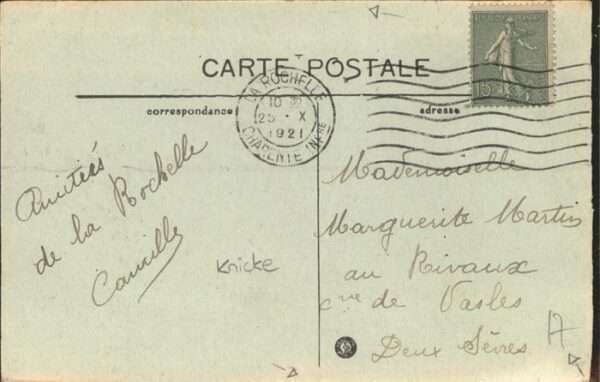 CARTE POSTALE
correspondance
adresse
LA ROCHELLE
10
25 · X
1921
CHARENTE INFRE
15
Amitiés
de la Rochelle
Camille
Knicke
Mademoiselle
Marguerite Martin
au Rivaux
Cne de Vasles
Deux Sèvres